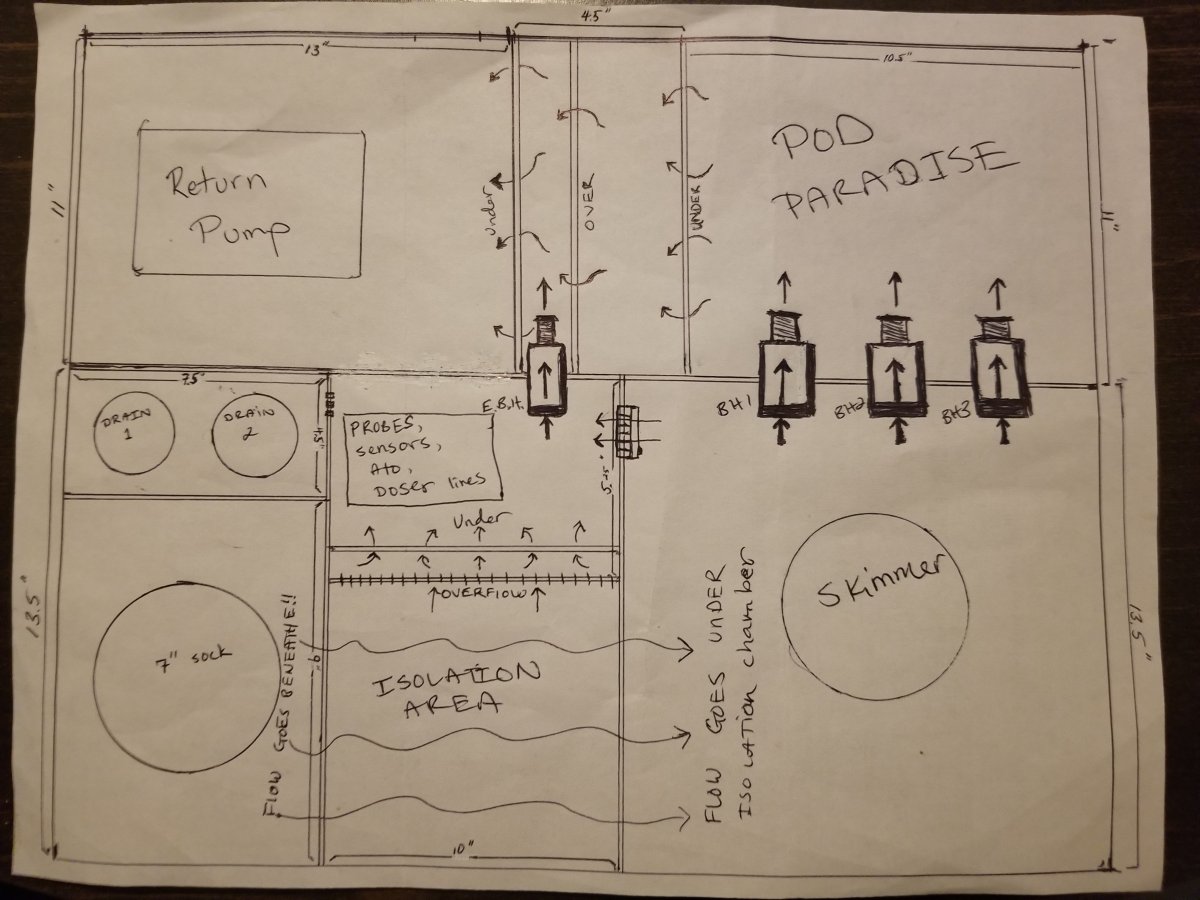 4.5"
13"
10.5"
11"
Return
Pump
under
OVER
UNDER
POD
PARADISE
11"
7.5"
DRAIN
1
DRAIN
2
4.5"
E.B.H.
BH1
BH2
BH3
PROBES,
sensors,
Ato,
Doser lines
5.25"
Under
OVERFLOW
13.5"
7" sock
FLOW GOES BENEATHE!!
9"
ISOLATION
AREA
FLOW GOES UNDER
ISOLATION chamber
Skimmer
13.5"
10"